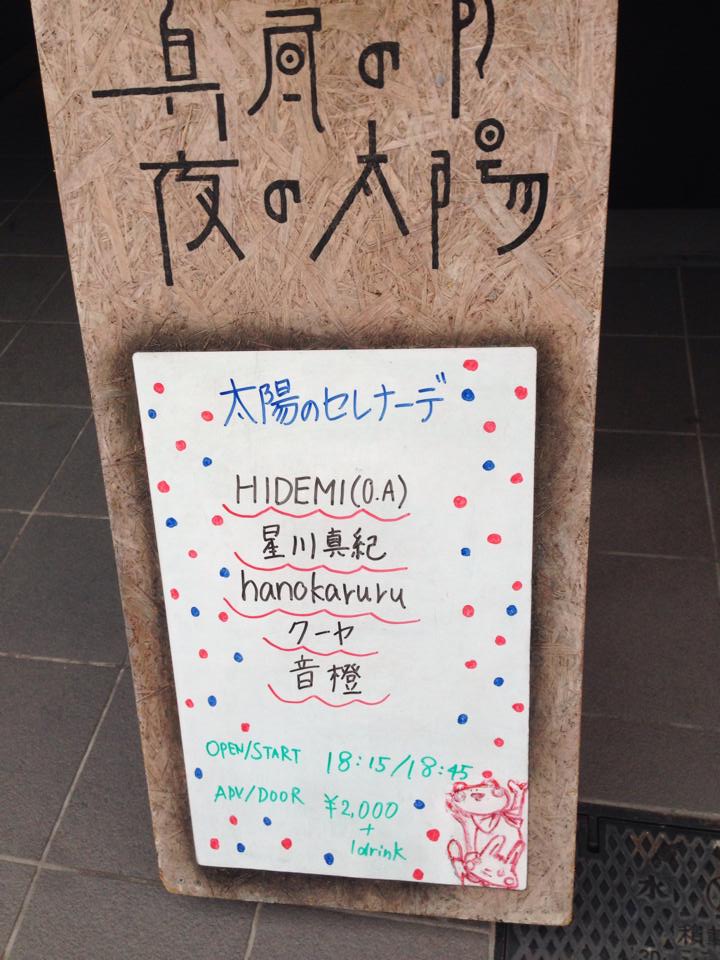 真昼の月
夜の太陽
太陽のセレナーデ
HIDEMI(O.A)
星川真紀
hanokaruru
クーヤ
音橙
OPEN/START 18:15/18:45
ADV/DOOR ¥2,000
+
1drink
水